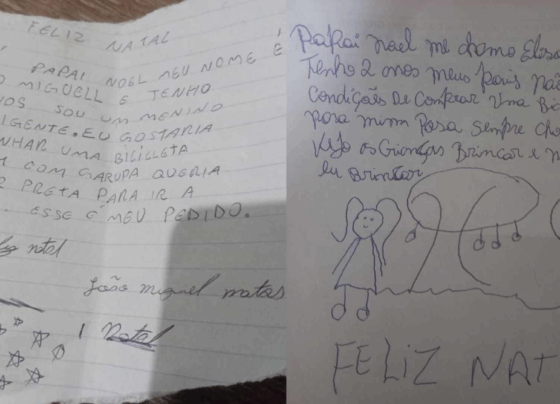 FELIZ NATAL
PAPAI NOEL MEU NOME É
MIGUELL E TENHO
SOU UM MENINO
EU GOSTARIA
UMA BILICLETA
COM GARUPA QUERIA
PRETA PARA IR A
ESSE É MEU PEDIDO.
natal
João miguel matos
1 Natal
Papai noel me chamo
Tenho 2 anos meus pais
Condição De Comprar Uma
para mim Posa sempre
Vejo os Crianças Brincar e
eu Brincar
FELIZ NAT